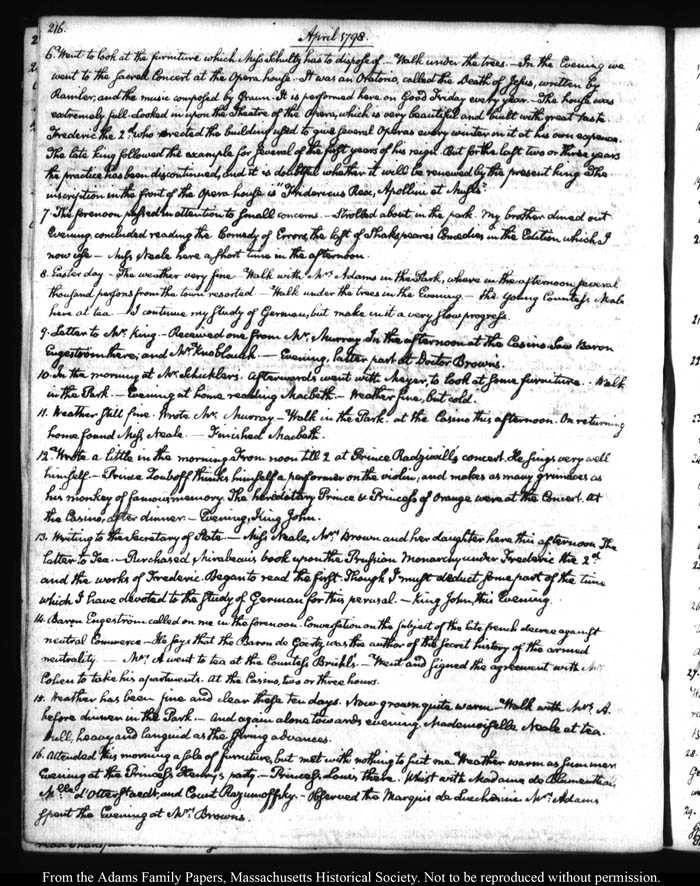 216.
April 1798.
6. Went to look at the furniture which Miss Schultz has to dispose of. — Walk under the trees. — In the Evening we
went to the sacred Concert at the Opera house. It was an Oratorio, called the Death of Jesus, written by
Ramler, and the music composed by Graun. It is performed here on Good Friday every year. The house was
extremely full. Looked in upon the Theatre of the Opera, which is very beautiful and built with great taste.
Frederic the 2d. who erected the building used to give several Operas every winter in it at his own expence.
The late king followed the example for several of the first years of his reign. But for the last two or three years
the practice has been discontinued, and it is doubtful whether it will be renewed by the present king. The
inscription in the front of the Opera house is "Fridericus Rex, Apollini et Musis."
7. This forenoon passed in attention to small concerns. — Strolled about in the park. My brother dined out
Evening, concluded reading the Comedy of Errors, the last of Shakspeare's Comedies in the Edition which I
now use. — Miss Neale here a short time in the afternoon.
8. Easter day. The weather very fine. Walk with Mrs. Adams in the Park, where in the afternoon several
thousand persons from the town resorted. — Walk under the trees in the Evening. — The young Countess Neale
here at tea. I continue my study of German, but make in it a very slow progress.
9. Letter to Mr. King. — Received one from Mr. Murray. In the afternoon at the Casino. Saw Baron
Engeström there; and Mr. Knoblauch. — Evening, latter part at Doctor Brown's.
10. In the morning at Mr. Schickler's. Afterwards went with Meyer, to look at some furniture. Walk
in the Park. — Evening at home reading Macbeth. — Weather fine, but cold.
11. Weather still fine. Wrote Mr. Murray. — Walk in the Park. at the Casino this afternoon. On returning
home found Miss Neale. — Finished Macbeth.
12. Wrote a little in the morning. From noon till 2 at Prince Radziwill's concert. He sings very well
himself. — Prince Zouboff thinks himself a performer on the violin, and makes as many grimaces as
his monkey of famous memory. The hereditary Prince & Princess of Orange were at the Concert. At
the Casino, after dinner. — Evening, King John.
13. Writing to the Secretary of State. — Miss Neale, Mrs. Brown and her daughter here this afternoon. The
latter to Tea. — Purchased, Mirabeau's book upon the Prussian Monarchy under Frederic the 2d
and the works of Frederic. Began to read the first. Though I must deduct some part of the time
which I have devoted to the study of German for this perusal. — King John, this Evening.
14. Baron Engeström called on me in the forenoon. Conversation on the subject of the late french decree against
neutral Commerce. — He says that the Baron de Goertz, was the author of the secret history of the armed
neutrality. — Mrs. A went to tea at the Countess Brühl's. — Went and signed the agreement with Mr.
Cohen to take his apartments. At the Casino, two or three hours.
15. Weather has been fine and clear these ten days. Now grown quite warm. — Walk with Mrs. A.
before dinner in the Park. — And again alone towards evening. Mademoiselle Neale at tea.
Dull, heavy and languid as the spring advances.
16. Attended this morning a sale of furniture, but met with nothing to suit me. Weather warm as summer.
Evening at the Princess Henry's party. — Princess Louis there. Whist with Madame de Blumenthal,
Mlle. d'Otterstaedt, and Count Razumoffsky. — Observed the Marquis de Lucchesini. Mrs. Adams
spent the Evening at Mrs. Brown's.
From the Adams Family Papers, Massachusetts Historical Society. Not to be reproduced without permission.